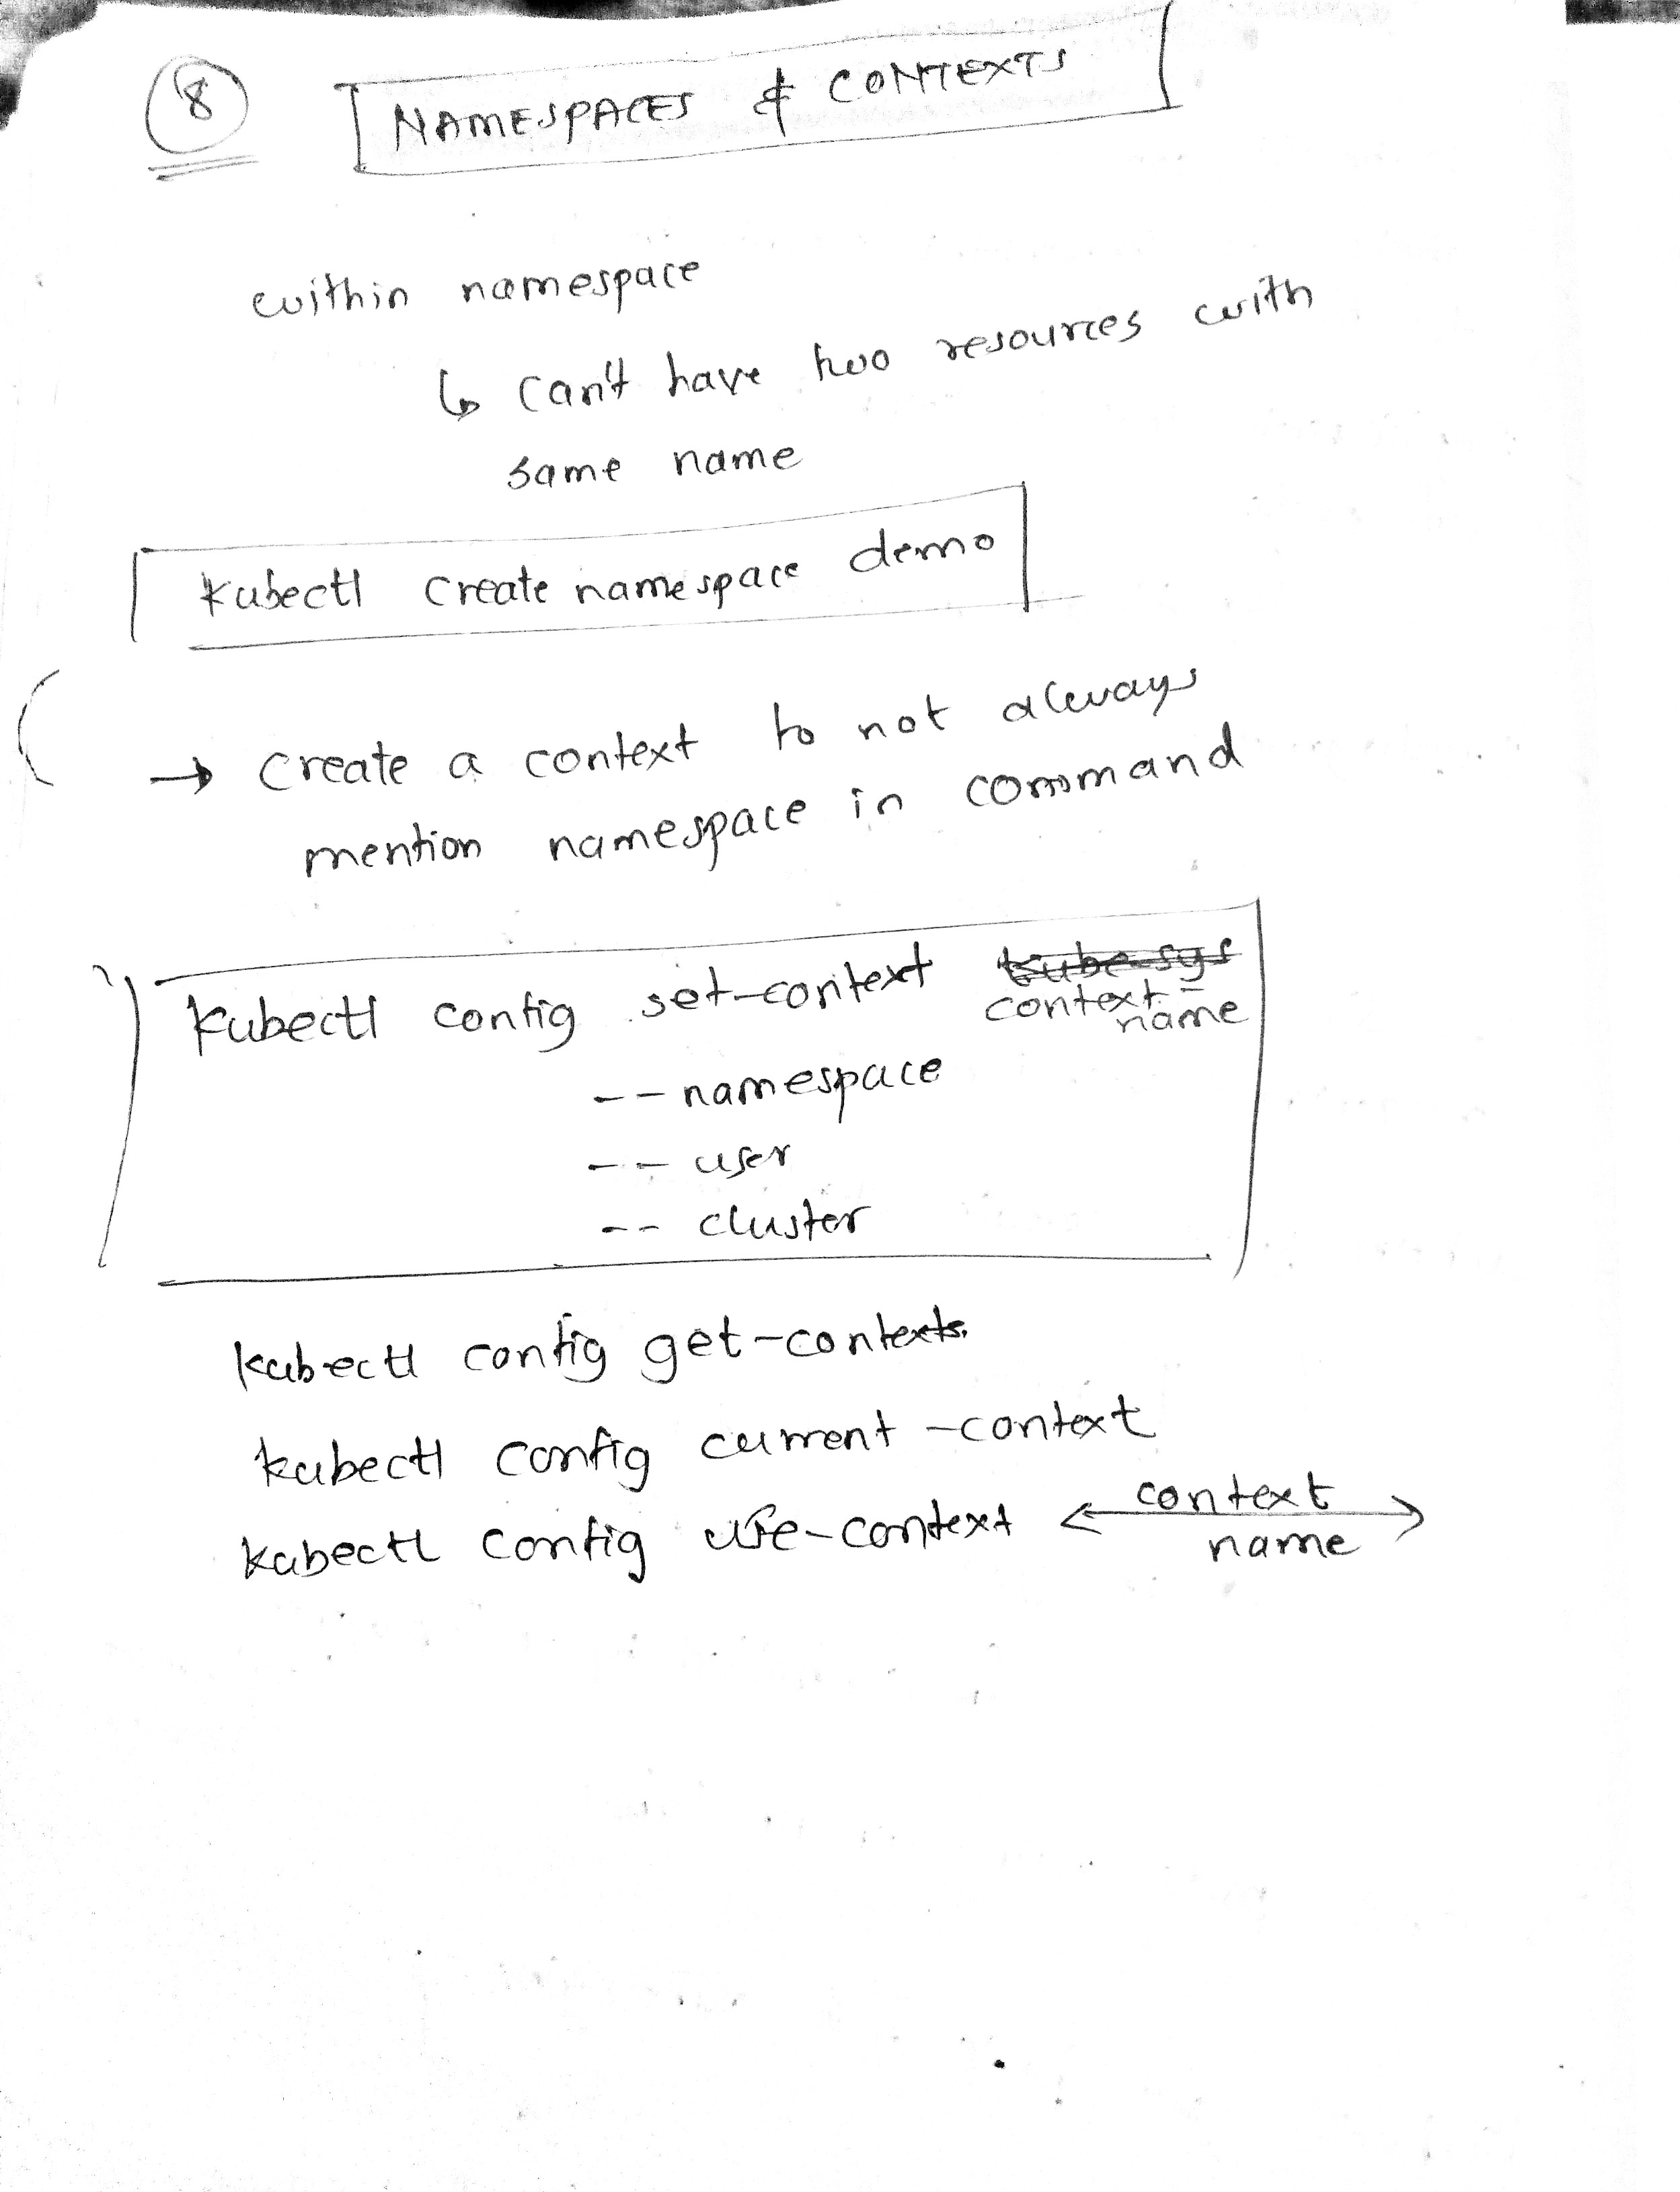 8
NAMESPACES & CONTEXTS
within namespace
↳ can't have two resources with
same name
kubectl create namespace demo
→ create a context to not always
mention namespace in command
kubectl config set-context kube-sys
context-
name
-- namespace
-- user
-- cluster
kubectl config get-contexts.
kubectl config current-context
kubectl config use-context <context
name>